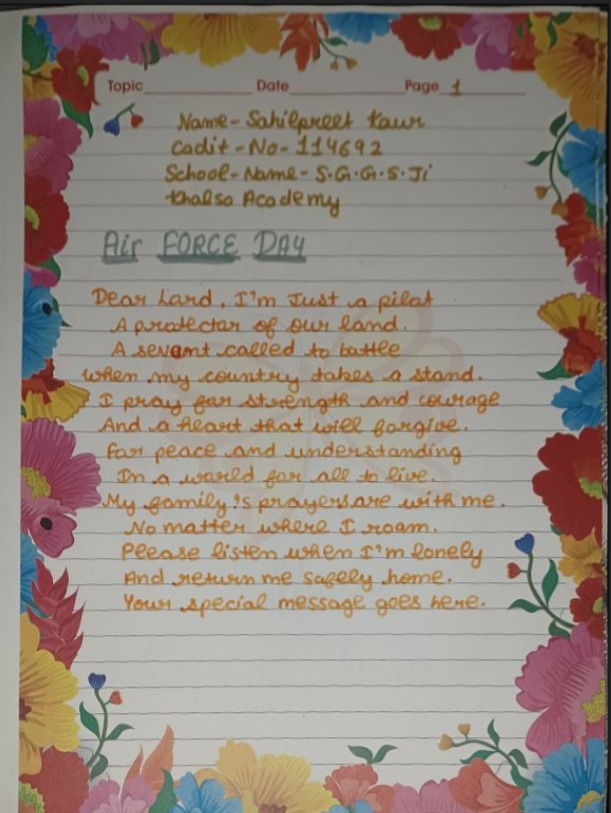 Topic Date Page 1
Name - Sahilpreet Kaur
Cadit - No - 114692
School - Name - S.G.G.S. Ji
Khalsa Academy
Air FORCE DAY
Dear Lard, I'm Just a pilat
A pratectar of our land.
A sevant called to battle
when my country takes a stand.
I pray far strength and courage
And a heart that will forgive.
Far peace and understanding
In a warld far all to live.
My family's prayers are with me.
No matter where I roam.
Please listen when I'm lonely
And return me safely home.
Your special message goes here.